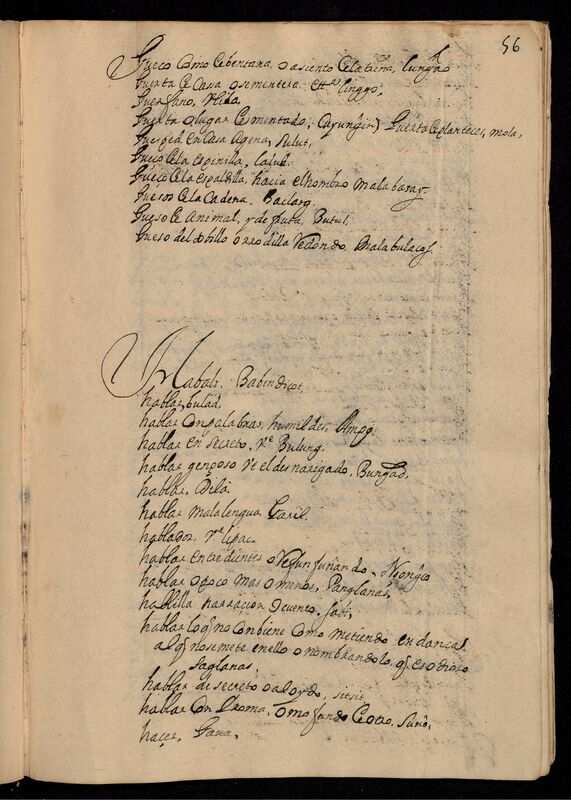 56
Gueco como de bentana, o asiento de la tina, lungao
Guerta de casa o sementera. linggo,
Guerfano, Olila.
Guerta o lugar sementado, Cayungin) Guerta de planteces, mola,
Guesped en casa agena, Sulut,
Gueço de la espinilla, lalud.
Gueço de la espaldilla, hacia el hombro malabaray,
Guesos de la Cadera, baclang.
Gueso de Animal, y de fruta, Butul,
Gueso del tobillo o rrodilla redondo, Malabulacos.
Habali. Babindicot,
hablar, bulad,
hablar con palabras, humildes, Ampog.
hablar en secreto, Ve Bulung.
hablar gangoso Ve el desnarigado, Bungad.
hablar, Dila.
hablar mala lengua
hablador, Ve lipac.
hablar entre dientes o refunfuñando, Ngongo
hablar o poco mas o menos, Panglanas,
hablilla narraçion o cuento,
hablar lo q no conbiene como metiendo en danças
al q no se mete en ello o nombrandolo, q es odioso
saglanas,
hablar de secreto o al oydo, sitsit
hablar con
haçer, Gaua,